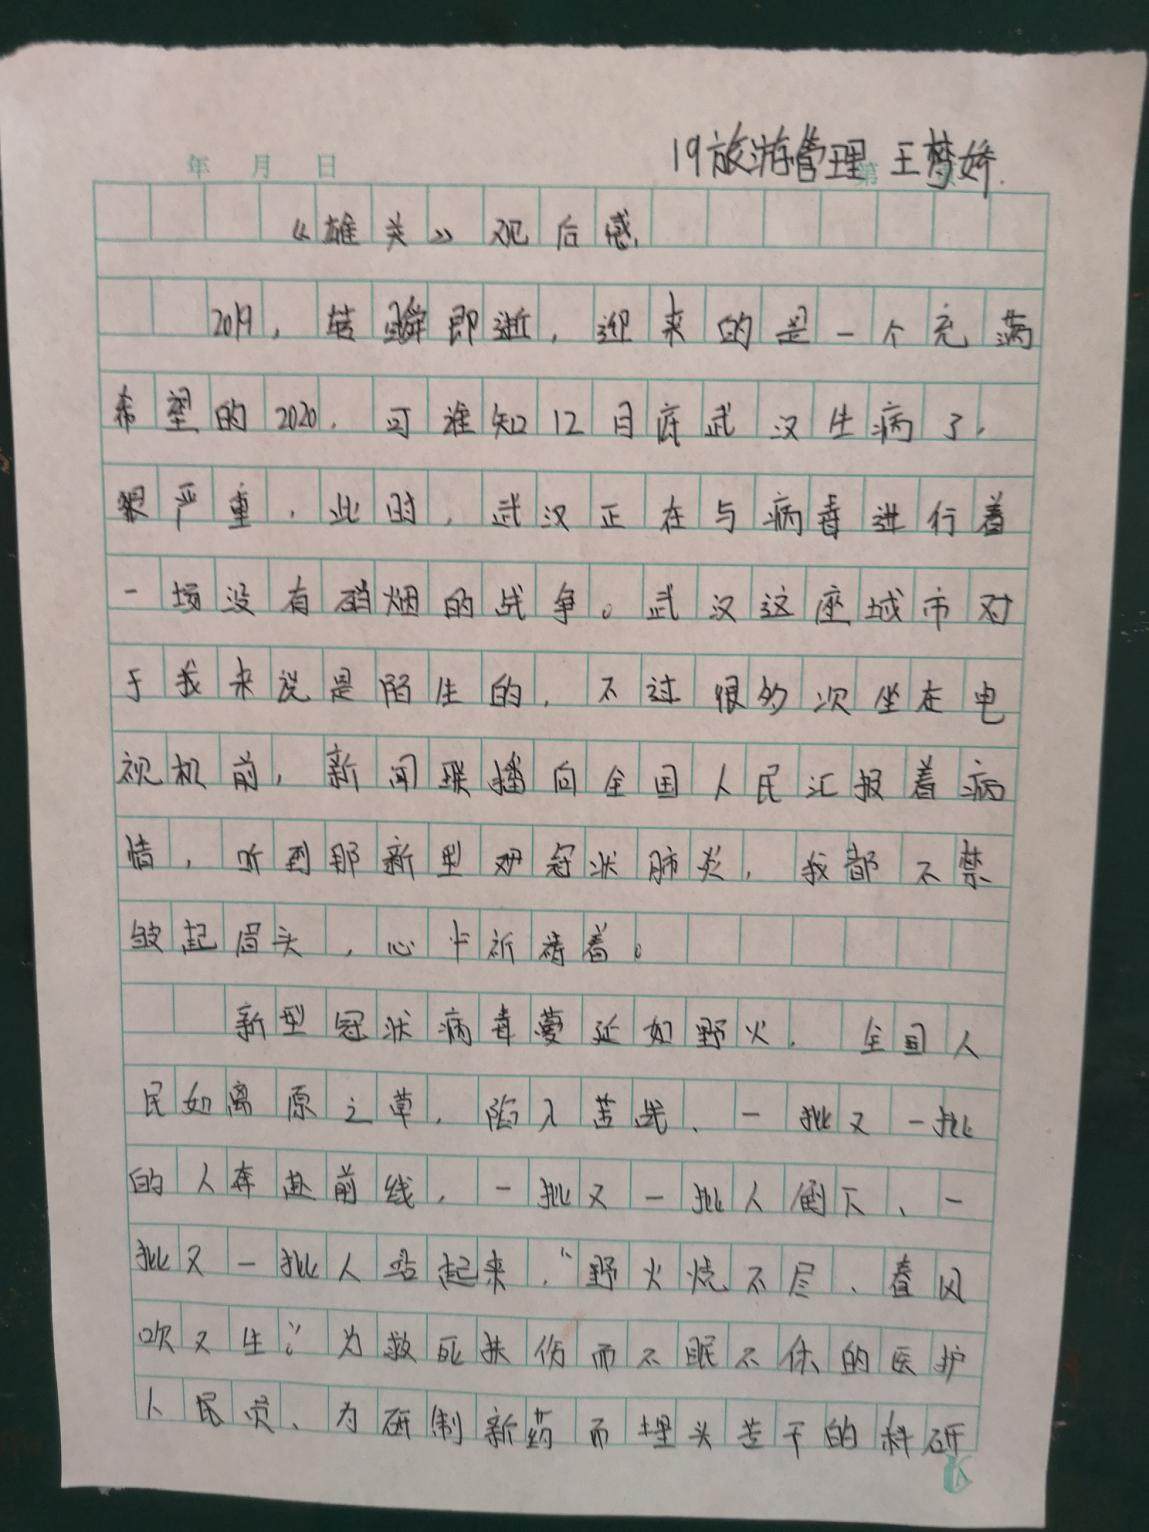 19旅游管理 王梦娇
年 月 日 第
《雄关》观后感
2019，转瞬即逝，迎来的是一个充满
希望的2020，可谁知12月底武汉生病了，
很严重，此时，武汉正在与病毒进行着
一场没有硝烟的战争。武汉这座城市对
于我来说是陌生的，不过很多次坐在电
视机前，新闻联播向全国人民汇报着病
情，听到那新型冠状肺炎，我都不禁
皱起眉头，心中祈祷着。
新型冠状病毒蔓延如野火，全国人
民如离原之草，陷入苦战、一批又一批
的人奔赴前线，一批又一批人倒下、一
批又一批人站起来，“野火烧不尽、春风
吹又生”。为救死扶伤而不眠不休的医护
人民员、为研制新药而埋头苦干的科研